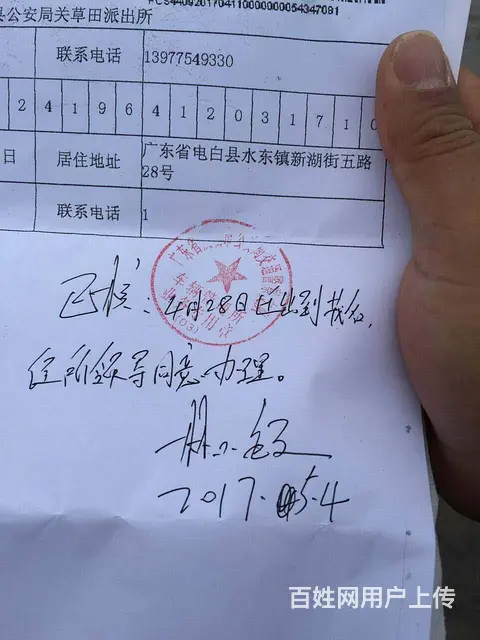 FCS440920170411000000000054347081
县公安局关草田派出所
联系电话 13977549330
2 4 1 9 6 4 1 2 0 3 1 7 1 0
日 居住地址 广东省电白县水东镇新湖街五路
28号
联系电话 1
广东省
车辆管理所
(03)
已核:4月28日迁出到茂名,
住所领导同意办理。
2017.05.4
百姓网用户上传